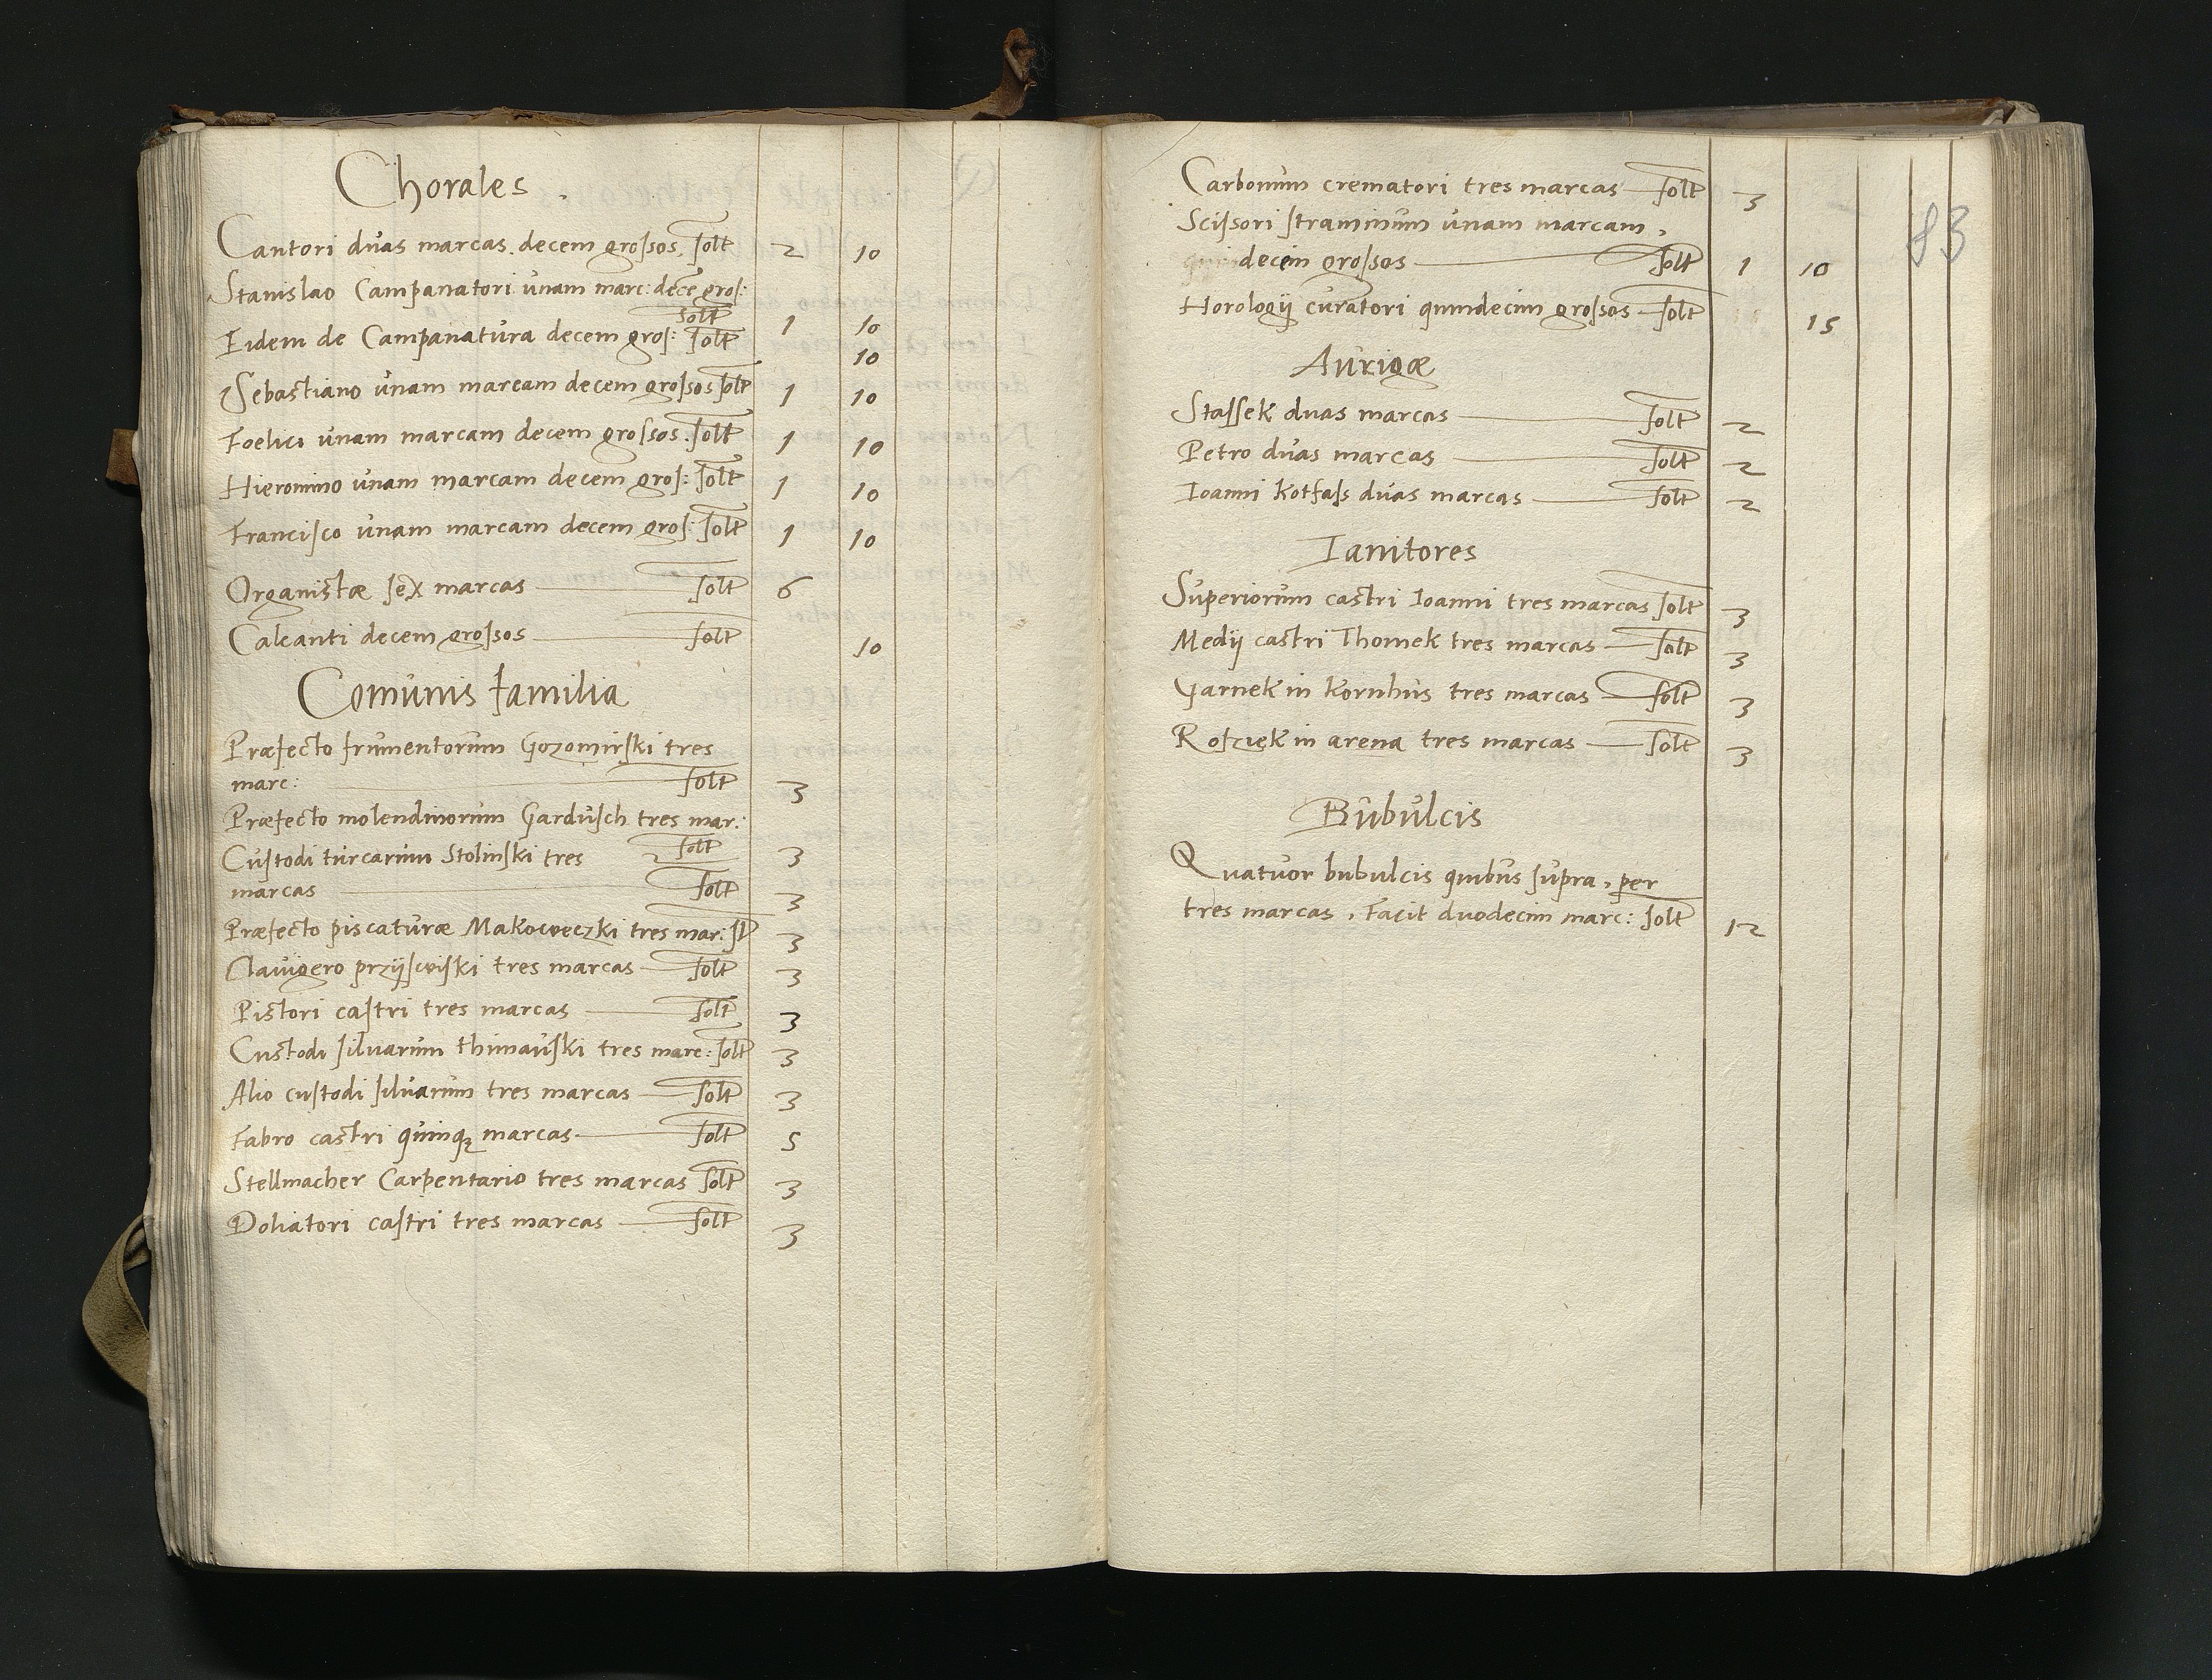 Chorales .
Cantori duas marcas. decem grossos. solt 2 10
Stanislao Campanatori unam marc: dece gros:
solt 1 10
Eidem de Campanatura decem gros: solt 10
Sebastiano unam marcam decem grossos solt 1 10
Foelici unam marcam decem grossos. solt 1 10
Hieronimo unam marcam decem gros: solt 1 10
Francisco unam marcam decem gros: solt 1 10
Organistæ sex marcas solt 6
Calcanti decem grossos solt 10
Comunis familia
Præfecto frumentorum Gozomirski tres
marc: solt 3
Præfecto molendinorum Gardusch tres mar:
solt 3
Custodi turcarum Stolinski tres
marcas solt 3
Præfecto piscaturæ Makoweczki tres mar: st 3
Clavigero przijswiski tres marcas solt 3
Pistori castri tres marcas solt 3
Custodi silvarum thimauski tres marc: solt 3
Alio custodi silvarum tres marcas solt 3
Fabro castri quinqꝫ marcas solt 5
Stellmacher Carpentario tres marcas solt 3
Doliatori castri tres marcas solt 3
83
Carbonum crematori tres marcas solt 3
Scissori straminum unam marcam,
decem grossos solt 1 10
Horologij curatori quindecim grossos solt 15
Aurigæ
Stassek duas marcas solt 2
Petro duas marcas solt 2
Ioanni Kotfass duas marcas solt 2
Ianitores
Superiorum castri Ioanni tres marcas solt 3
Medij castri Thomek tres marcas solt 3
Garnek in Kornhus tres marcas solt 3
Roszek in arena tres marcas solt 3
Bubulcis
Quatuor bubulcis quibus supra, per
tres marcas, Facit duodecim marc: solt 12